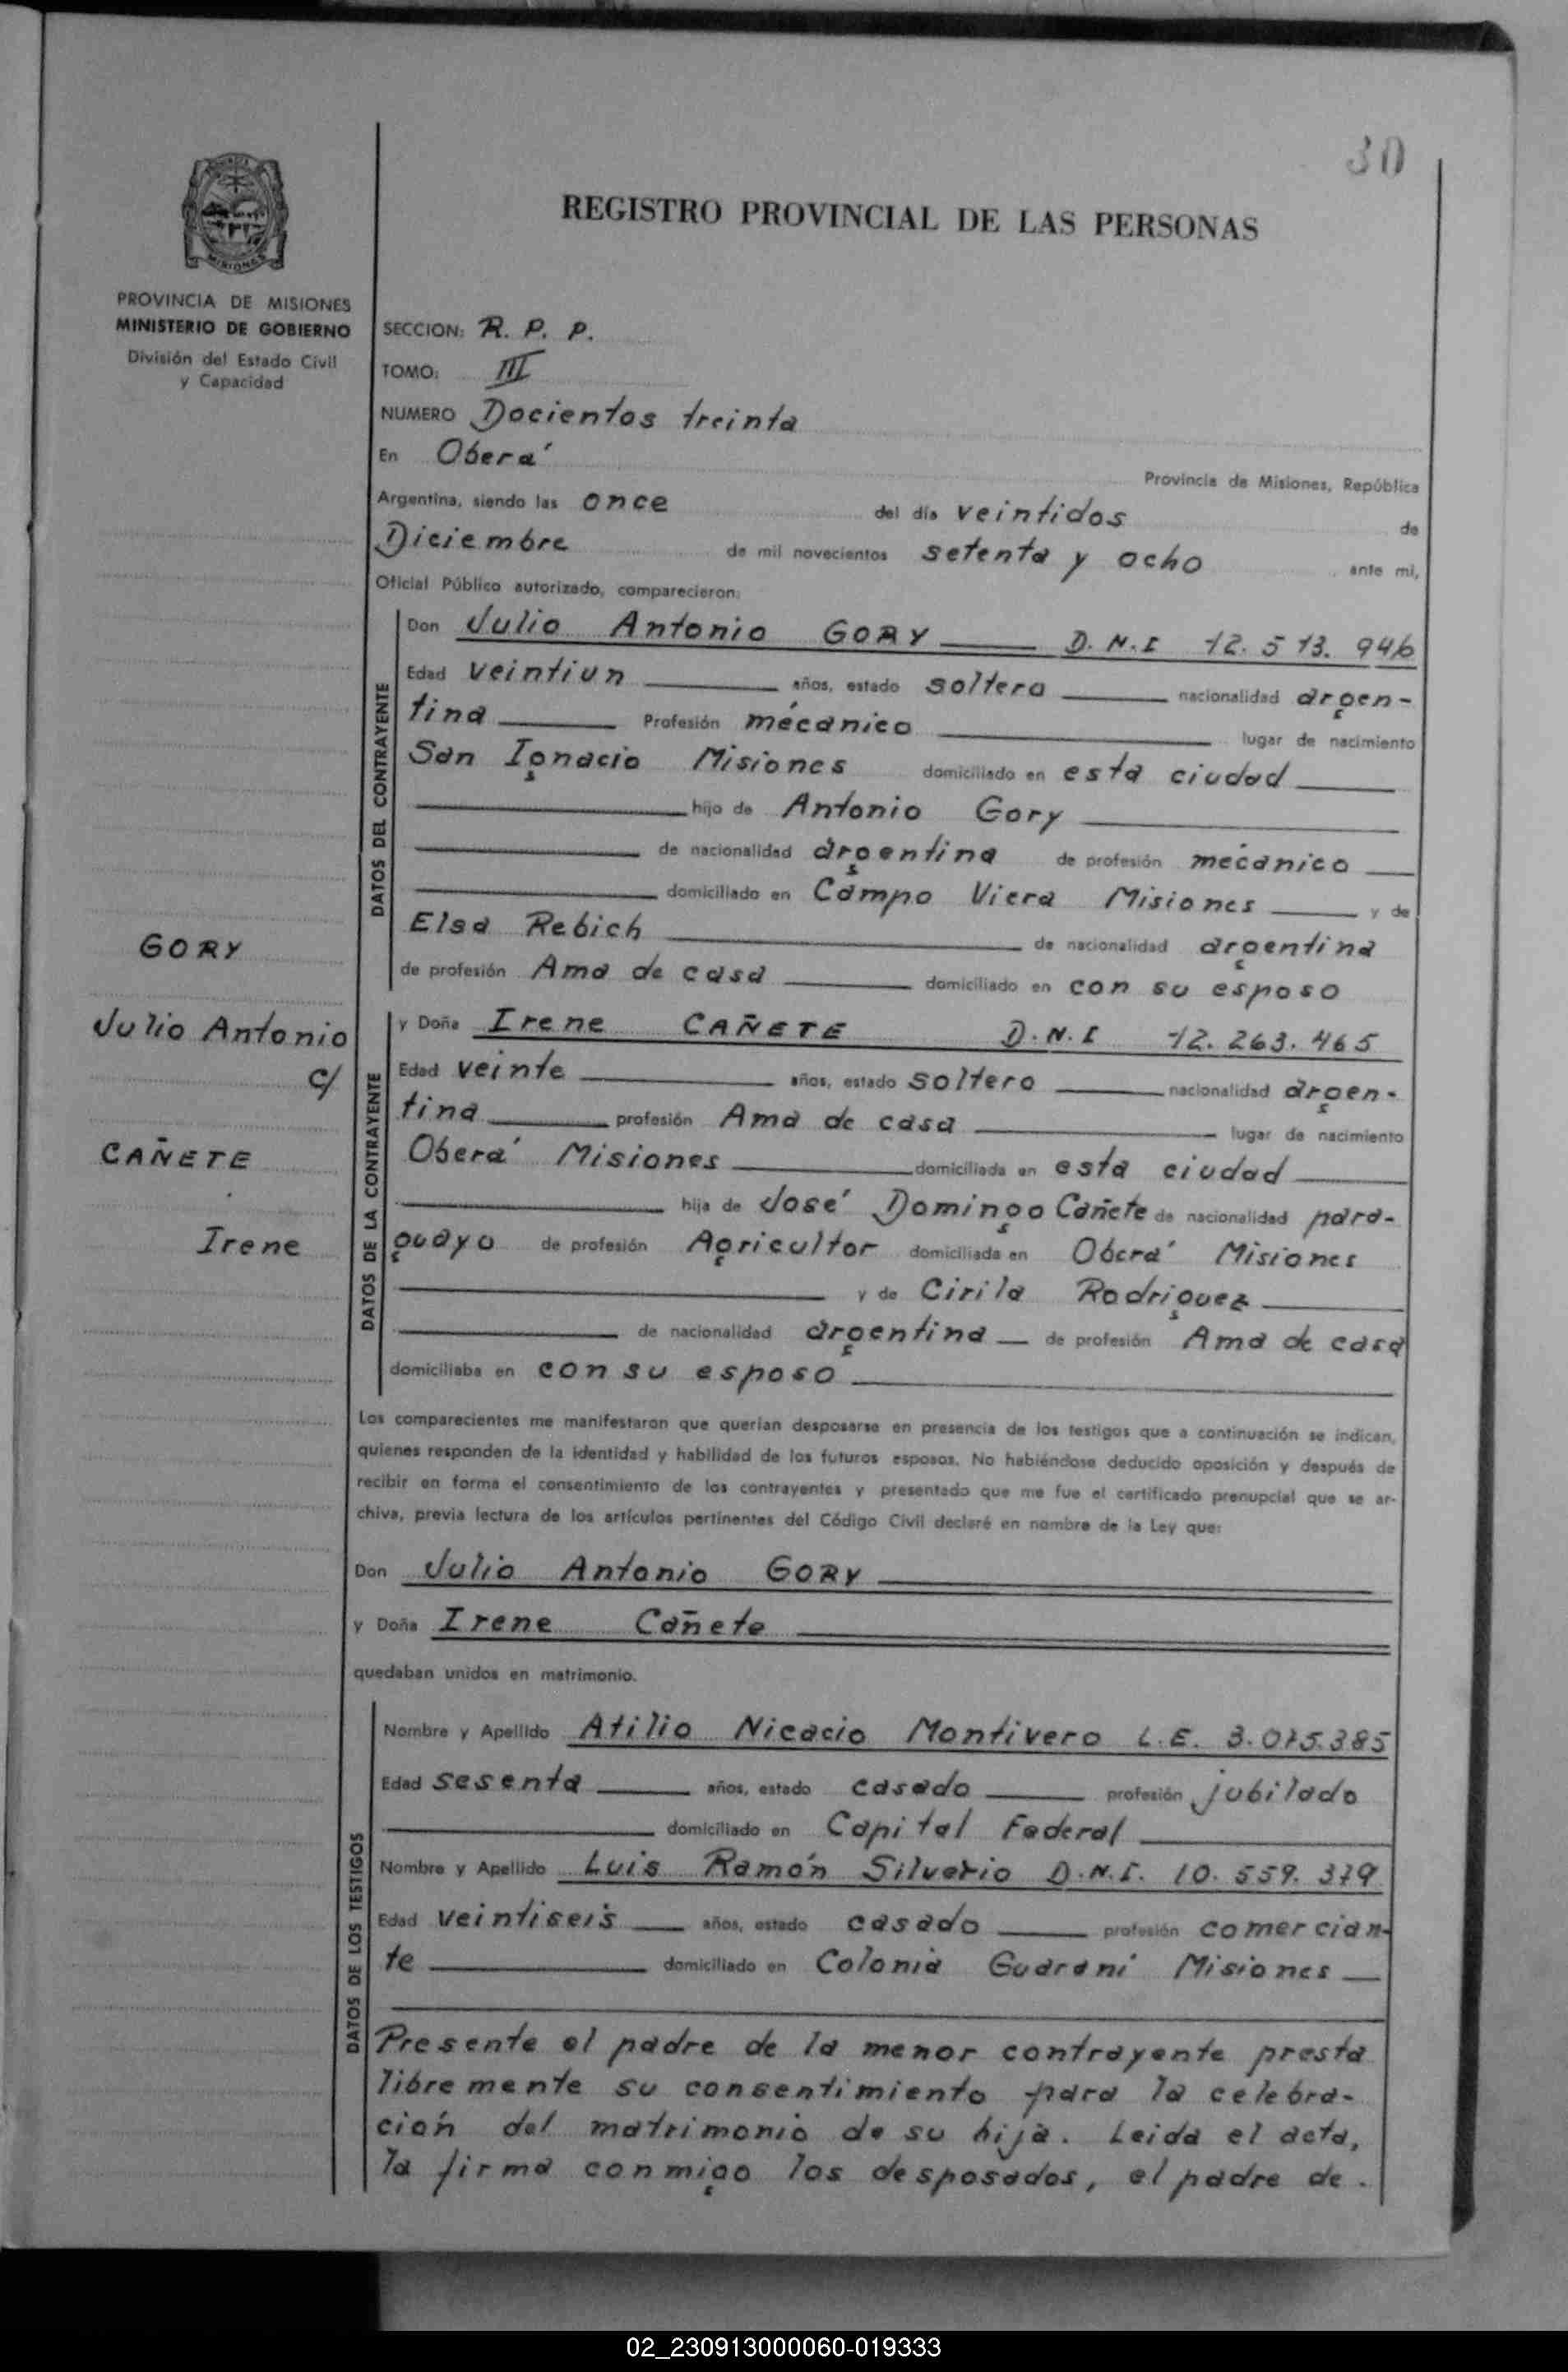 30
REGISTRO PROVINCIAL DE LAS PERSONAS
MISIONES
PROVINCIA DE MISIONES
MINISTERIO DE GOBIERNO
División del Estado Civil
y Capacidad
SECCION: R. P. P.
TOMO: III
NUMERO Docientos treinta
En Oberá
Provincia de Misiones, República
Argentina, siendo las once del día veintidos de
Diciembre de mil novecientos setenta y ocho ante mi,
Oficial Público autorizado, comparecieron:
DATOS DEL CONTRAYENTE
Don Julio Antonio GORY D.N.I 12.513.946
Edad veintiun años, estado soltero nacionalidad argen-
tina Profesión mécanico lugar de nacimiento
San Ignacio Misiones domiciliado en esta ciudad
hijo de Antonio Gory
de nacionalidad argentina de profesión mécanico
domiciliado en Campo Viera Misiones y de
Elsa Rebich de nacionalidad argentina
de profesión Ama de casa domiciliado en con su esposo
GORY
Julio Antonio
c/
CAÑETE
Irene
DATOS DE LA CONTRAYENTE
y Doña Irene CAÑETE D.N.I 12.263.465
Edad veinte años, estado soltero nacionalidad argen-
tina profesión Ama de casa lugar de nacimiento
Oberá Misiones domiciliada en esta ciudad
hija de José Domingo Cañete de nacionalidad para-
guayo de profesión Agricultor domiciliada en Oberá Misiones
y de Cirila Rodriguez
de nacionalidad argentina de profesión Ama de casa
domiciliaba en con su esposo
Los comparecientes me manifestaron que querían desposarse en presencia de los testigos que a continuación se indican,
quienes responden de la identidad y habilidad de los futuros esposos. No habiéndose deducido oposición y después de
recibir en forma el consentimiento de los contrayentes y presentado que me fue el certificado prenupcial que se ar-
chiva, previa lectura de los artículos pertinentes del Código Civil declaré en nombre de la Ley que:
Don Julio Antonio GORY
y Doña Irene Cañete
quedaban unidos en matrimonio.
DATOS DE LOS TESTIGOS
Nombre y Apellido Atilio Nicacio Montivero L.E. 3.075.385
Edad sesenta años, estado casado profesión jubilado
domiciliado en Capital Federal
Nombre y Apellido Luis Ramón Silverio D.N.I. 10.559.379
Edad veintiseis años, estado casado profesión comercian-
te domiciliado en Colonia Guarani Misiones
Presente el padre de la menor contrayente presta
libremente su consentimiento para la celebra-
ción del matrimonio de su hija. Leida el acta,
la firma conmigo los desposados, el padre de
02_230913000060-019333